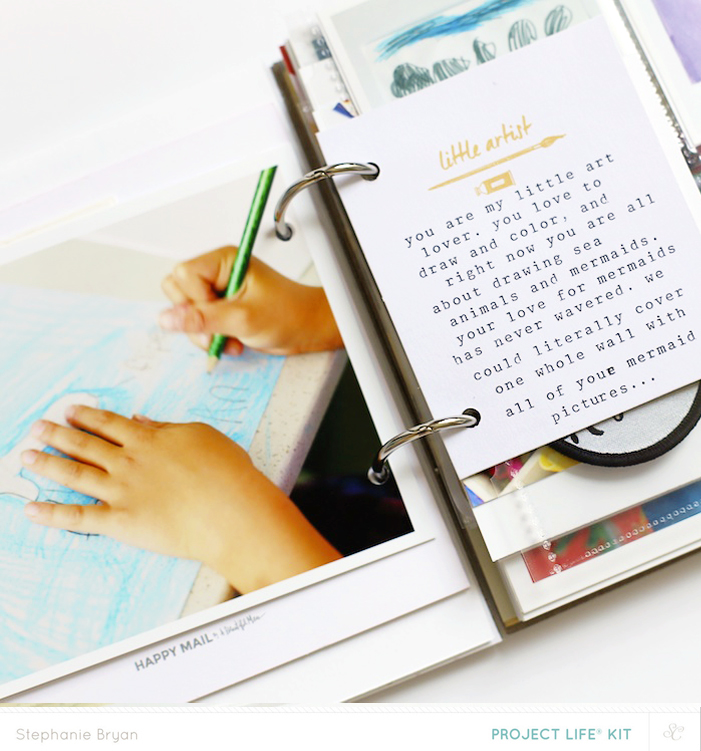 little artist
you are my little art
lover. you love to
draw and color, and
right now you are all
about drawing sea
animals and mermaids.
your love for mermaids
has never wavered. we
could literally cover
one whole wall with
all of your mermaid
pictures...
HAPPY MAIL by A Beautiful Mess
Stephanie Bryan
PROJECT LIFE® KIT
SC